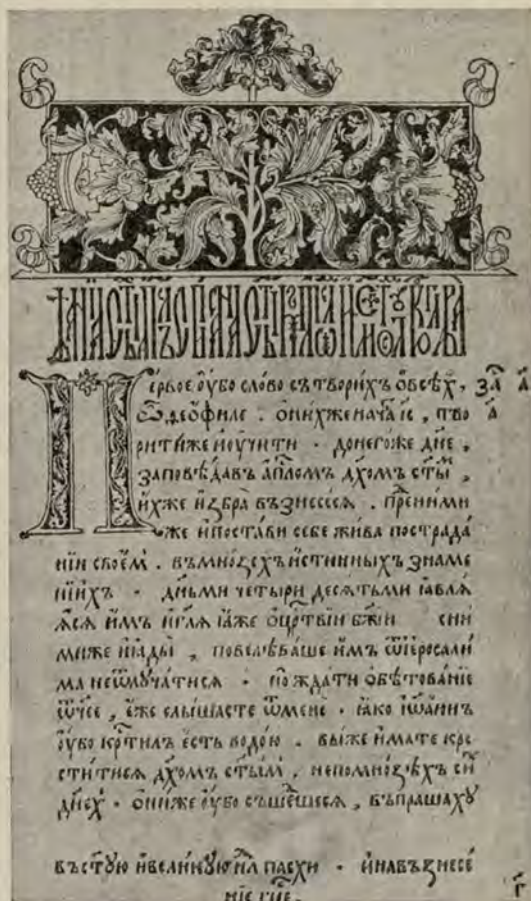 дѣѧнїѧ ст҃ыхъ апⷭ҇лъ списана ст҃ымъ апⷭ҇ломъ и еѵⷢ҇листомъ лꙋкою
Перьвое ѹ҆бо сло́во сътвори́хъ ѡ҆всѣ́хъ, за҃ а҃
ѽ, ѳео́филе . ѻ҆ни́хже нача́ і҆с҃, тво а҃
ри́ти́же и҆ѹ҆чи́ти · донего́же дн҃е ,
заповѣ́давъ а҆пⷭ҇ломъ дх҃омъ ст҃ы́ⷨ ,
и҆́хже и҆збра̀ възнесе́сѧ . пре́ни́ми
же и҆поста́ви себе жи́ва пострада́
нїи свое́мⷨ . въмно́зѣхъ и҆́стинныхъ зна́ме
нїихъ · дн҃ьми четы́ри десѧтьми ꙗ҆влѧ́
ѧсѧ и҆̀мъ и҆гл҃ѧ ꙗ҆́же ѡ҆црⷭ҇твїи бж҃їи сни́
ми́же и҆ꙗды́й , повелѣва́ше и҆̀мъ ѿ і҆еросали́
ма неѿлꙋча́тисѧ · но жда́ти ѻ҆бѣтова́нїе
ѿч҃ее , є҆́же слы́шасте ѿменѐ · ꙗ҆́ко і҆ѡа́ннъ
ѹ҆́бо крⷭ҇ти́лъ є҆́сть водо́ю . вы́же и҆́мате кре
сти́тисѧ дх҃омъ ст҃ы́мъ , непомно́зѣхъ си́ⷯ
дн҃е́хъ · ѻ҆ни́же ѹ҆́бо съше́дшесѧ , въпраша́хꙋ
въст҃ꙋ́ю и҆вели́кꙋю нⷣ҇лю па́схи · и҆навъзнесе́
нїе гнⷭ҇е . г҃